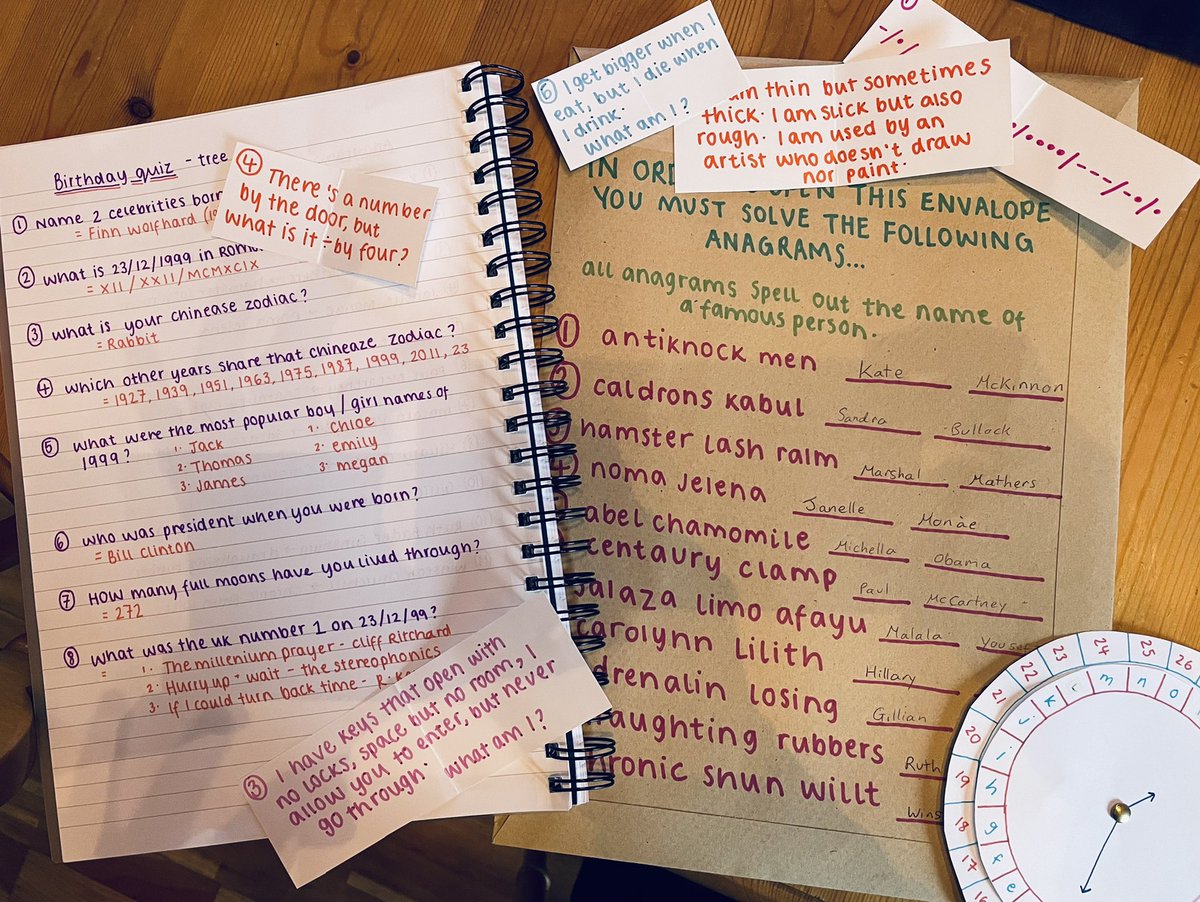 Birthday quiz - tree
① Name 2 celebrities born
= Finn wolfhard
② what is 23/12/1999 in Roma
= XII / XXII / MCMXCIX
③ what is your chinease zodiac?
= Rabbit
④ which other years share that chineaze zodiac?
= 1927, 1939, 1951, 1963, 1975, 1987, 1999, 2011, 23
⑤ what were the most popular boy / girl names of
1999?
1. Jack
2. Thomas
3. James
1. chloe
2. emily
3. megan
⑥ who was president when you were born?
= Bill clinton
⑦ How many full moons have you lived through?
= 272
⑧ what was the uk number 1 on 23/12/99?
= 1. The millenium prayer - cliff Ritchard
2. Hurry up + wait - the stereophonics
3. If I could turn back time - R.
④ There's a number
by the door, but
what is it ÷ by four?
③ I have keys that open with
no locks, space but no room, I
allow you to enter, but never
go through. what am I?
⑥ I get bigger when I
eat, but I die when
I drink.
what am I?
thin but sometimes
thick. I am slick but also
rough. I am used by an
artist who doesn't draw
nor paint.
IN OPEN THIS ENVALOPE
YOU MUST SOLVE THE FOLLOWING
ANAGRAMS...
all anagrams spell out the name of
a famous person.
① antiknock men Kate McKinnon
② caldrons kabul Sandra Bullock
hamster lash ralm Marshal Mathers
④ noma jelena Janelle Monàe
abel chamomile Michella Obama
centaury clamp Paul McCartney
jalaza limo afayu Malala
carolynn lilith Hillary
drenalin losing Gillian
aughting rubbers Ruth
hronic shun willt Wins
20 21 22 23 24 25 26
19 18 17 16
e f g h i j k l m n o